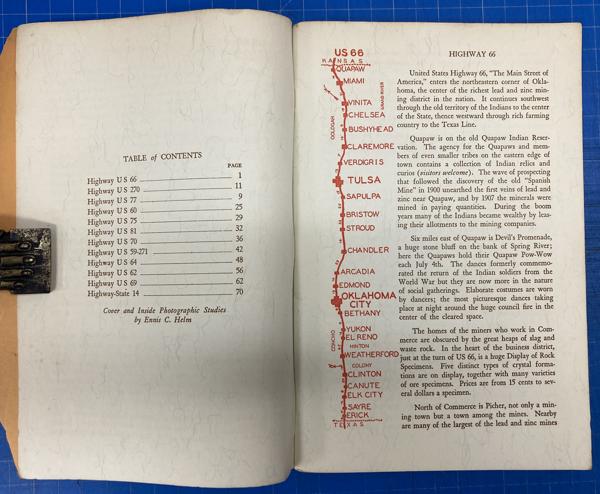 TABLE of CONTENTS
PAGE
Highway US 66 1
Highway US 270 11
Highway US 77 9
Highway US 60 25
Highway US 75 29
Highway US 81 32
Highway US 70 36
Highway US 59-271 42
Highway US 64 48
Highway US 62 56
Highway US 69 62
Highway-State 14 70
Cover and Inside Photographic Studies
by Ennis C. Helm
US 66
KANSAS
QUAPAW
MIAMI
GRAND RIVER
VINITA
CHELSEA
OOLOGAH
BUSHYHEAD
CLAREMORE
VERDIGRIS
TULSA
SAPULPA
BRISTOW
STROUD
CHANDLER
ARCADIA
EDMOND
OKLAHOMA
CITY
BETHANY
YUKON
EL RENO
CONCHO
HINTON
WEATHERFORD
COLONY
CLINTON
CANUTE
ELK CITY
SAYRE
ERICK
TEXAS
HIGHWAY 66
United States Highway 66, "The Main Street of
America," enters the northeastern corner of Okla-
homa, the center of the richest lead and zinc min-
ing district in the nation. It continues southwest
through the old territory of the Indians to the center
of the State, thence westward through rich farming
country to the Texas Line.
Quapaw is on the old Quapaw Indian Reser-
vation. The agency for the Quapaws and mem-
bers of even smaller tribes on the eastern edge of
town contains a collection of Indian relics and
curios (visitors welcome). The wave of prospecting
that followed the discovery of the old "Spanish
Mine" in 1900 unearthed the first veins of lead and
zinc near Quapaw, and by 1907 the minerals were
mined in paying quantities. During the boom
years many of the Indians became wealthy by leas-
ing their allotments to the mining companies.
Six miles east of Quapaw is Devil's Promenade,
a huge stone bluff on the bank of Spring River;
here the Quapaws hold their Quapaw Pow-Wow
each July 4th. The dances formerly commemo-
rated the return of the Indian soldiers from the
World War but they are now more in the nature
of social gatherings. Elaborate costumes are worn
by dancers; the most picturesque dances taking
place at night around the huge council fire in the
center of the cleared space.
The homes of the miners who work in Com-
merce are obscured by the great heaps of slag and
waste rock. In the heart of the business district,
just at the turn of US 66, is a huge Display of Rock
Specimens. Five distinct types of crystal forma-
tions are on display, together with many varieties
of ore specimens. Prices are from 15 cents to sev-
eral dollars a specimen.
North of Commerce is Picher, not only a min-
ing town but a town among the mines. Nearby
are many of the largest of the lead and zinc mines